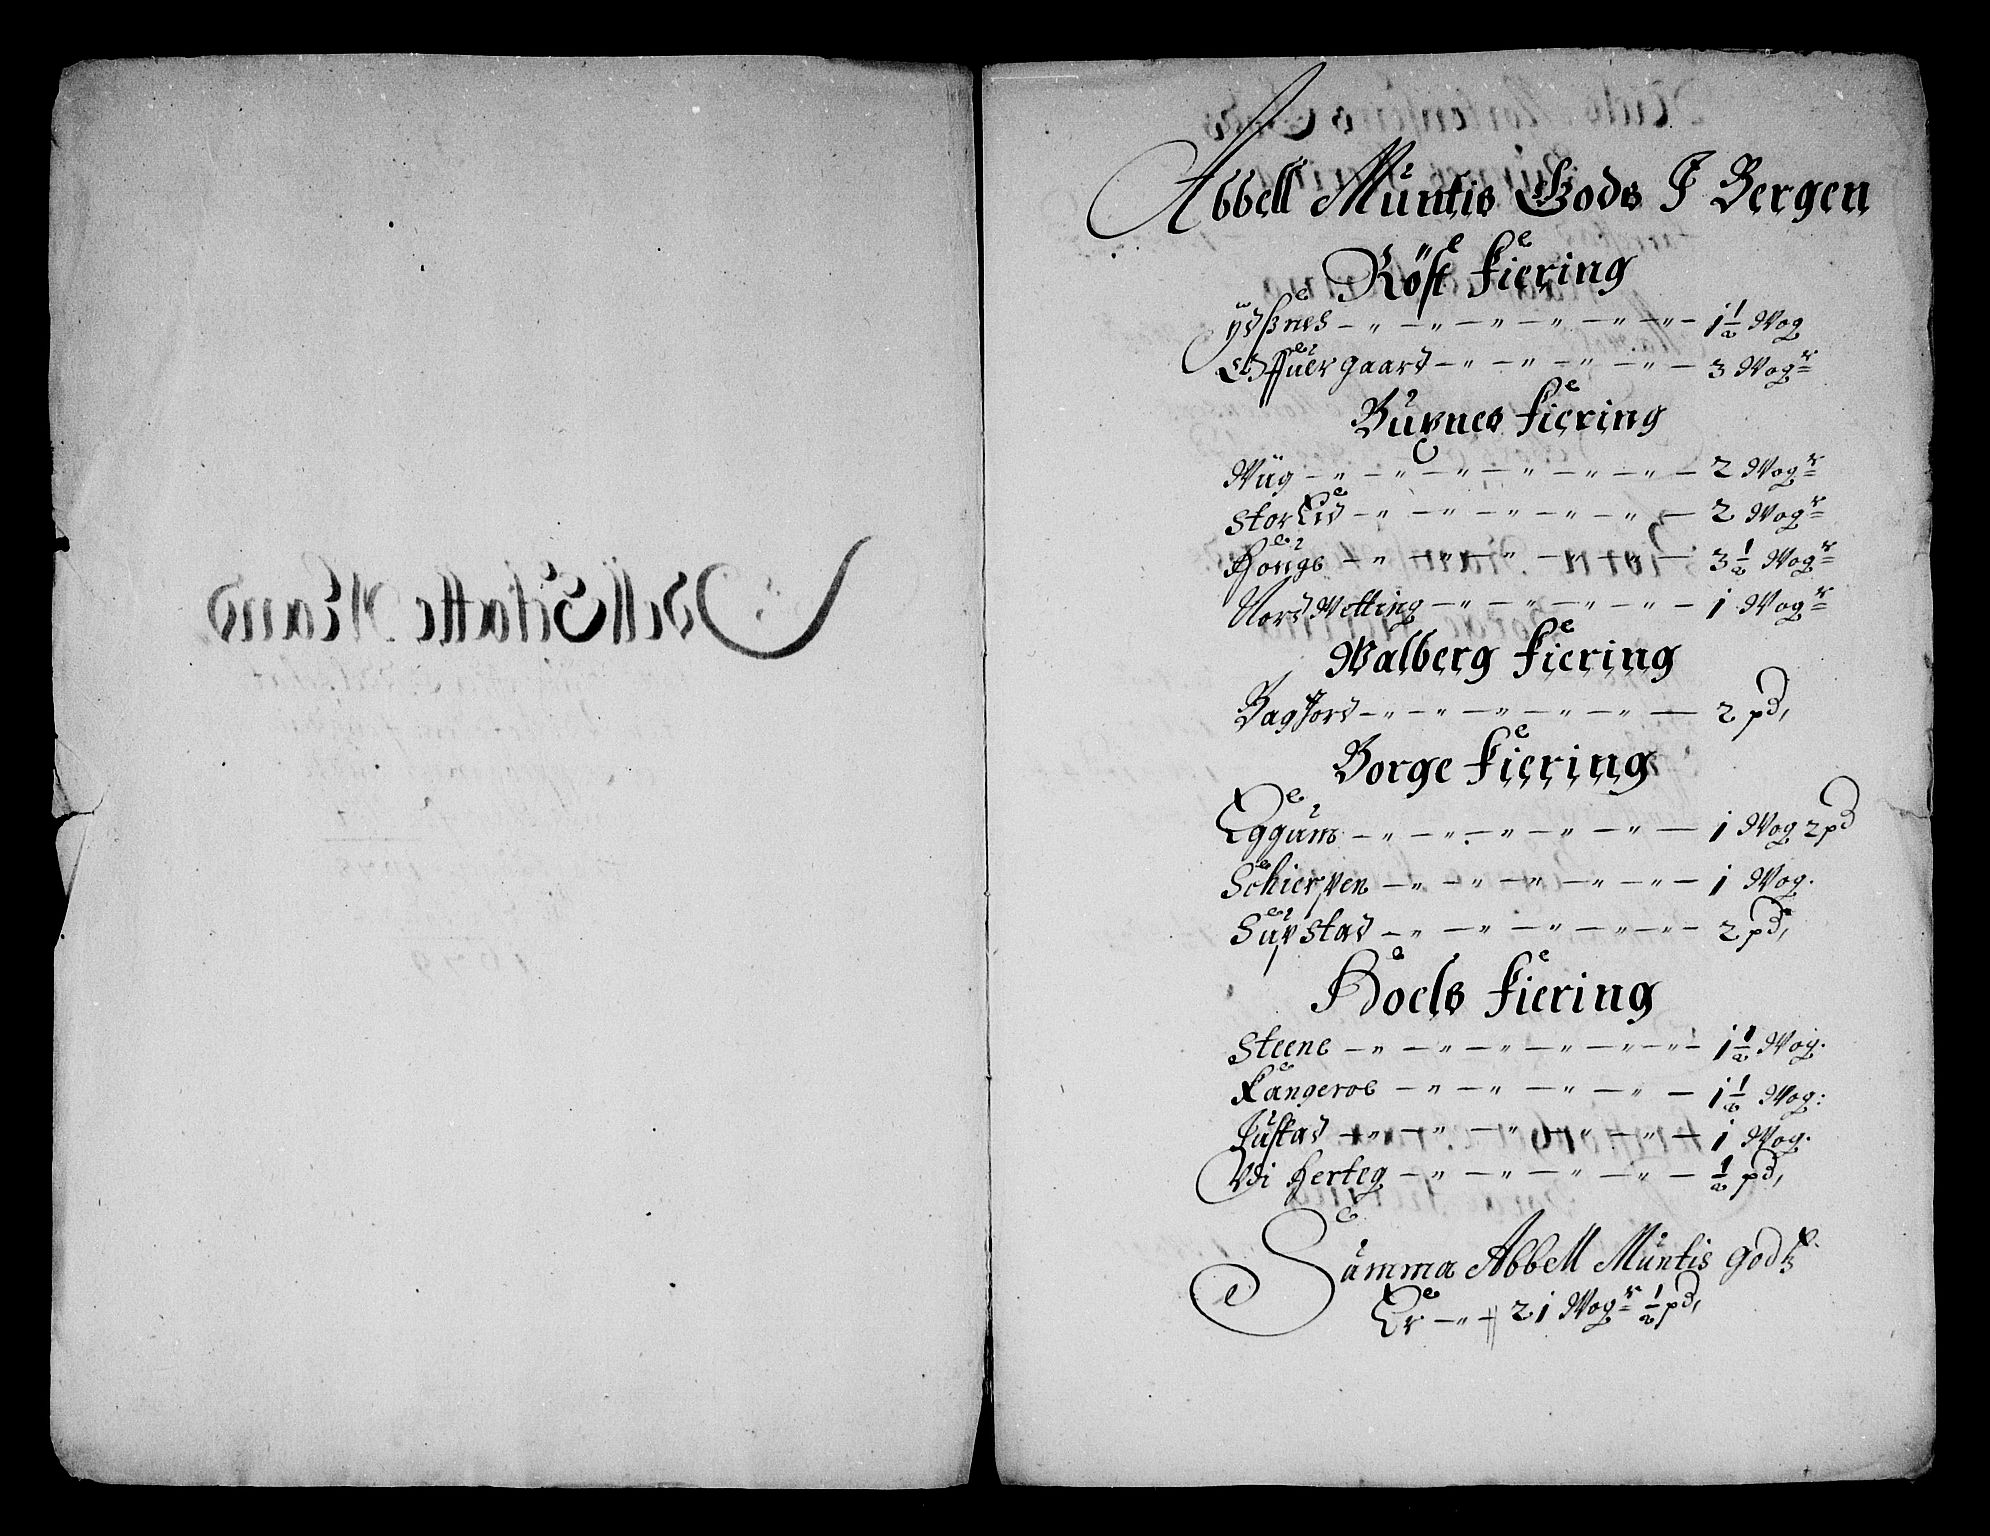 Abbell Muntis Gods I Bergen
Röst Fiering
ydßnes – „ – „ – „ – „ – „ – „ – 1 1/2 Wog
Offuer gaard – „ – „ – „ – „ – 3 Wogr
Buxnes Fiering
Wiig – „ – „ – „ – „ – „ – „ – 2 Wogr
Stor Eid – „ – „ – „ – „ – „ – 2 Wogr
Hougs – „ – „ – „ – „ – „ – 3 1/2 Wogr
Nord Wetting – „ – „ – „ – „ – 1 Wogr
Walberg Fiering
Bagjord – „ – „ – „ – „ – „ – 2 pd,
Borge Fiering
Eggum – „ – „ – „ – „ – „ – 1 Wog 2 pd
Schierpen – „ – „ – „ – „ – „ – 1 Wog.
Supstad – „ – „ – „ – „ – „ – 2 pd,
Hoels Fiering
Steene – „ – „ – „ – „ – „ – „ – 1 1/2 Wog.
Kangeroe – „ – „ – „ – „ – 1 1/2 Wog:
Justad – „ – „ – „ – „ – „ – 1 Wog.
Vdi Herteg – „ – „ – „ – „ – 1/2 pd,
Summa Abbell Muntis godß
Er – „ – 21 Wogr 1/2 pd,